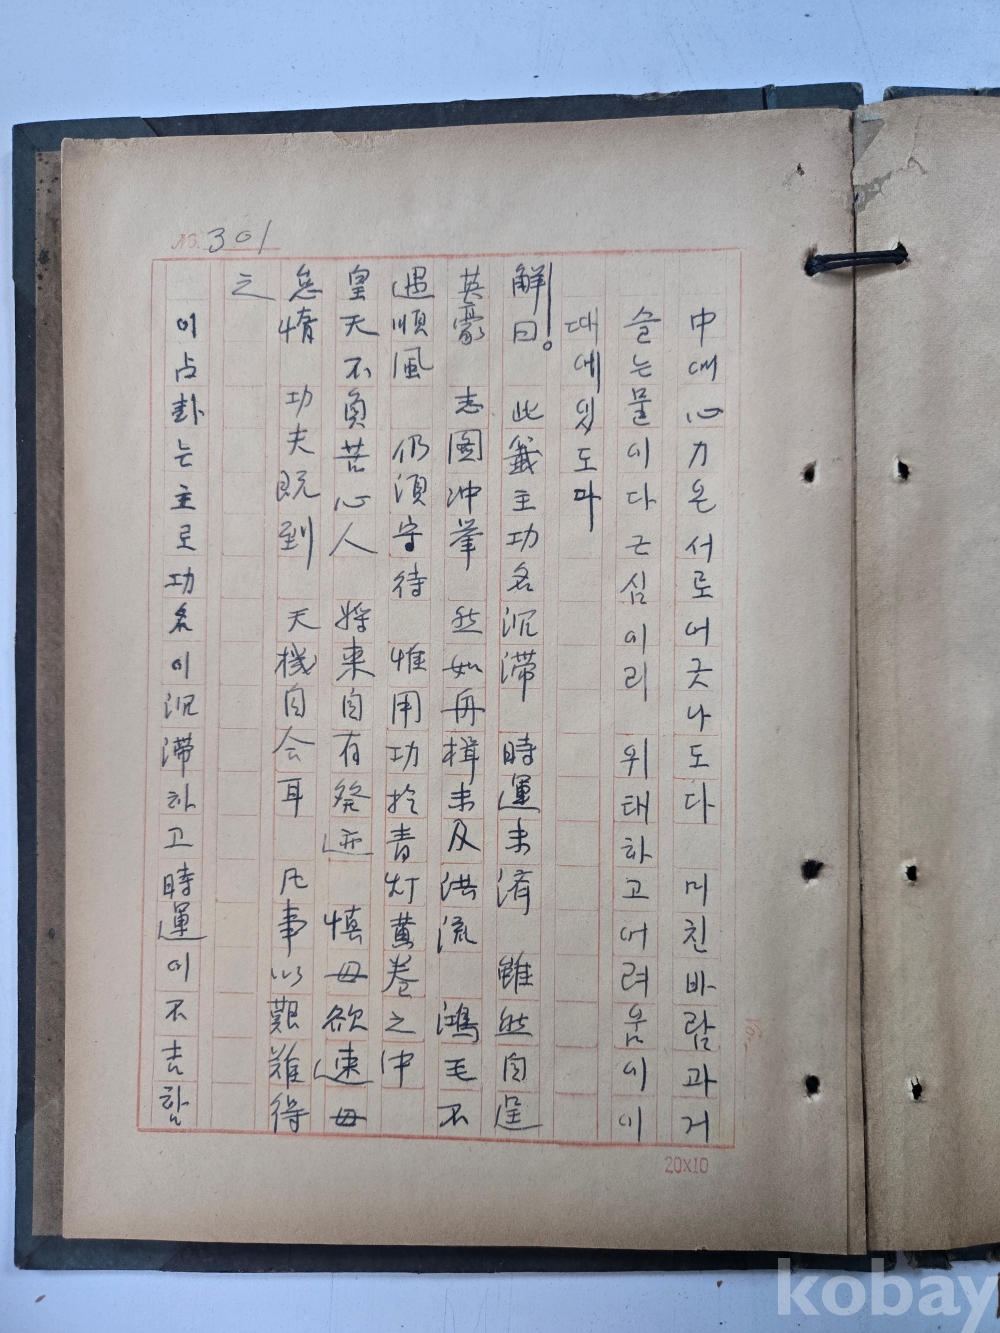 No. 301
中대 心力은 서로 어긋나도다 미친바람과 거
슬는물이다 근심이리 위태하고 어려움이 이
대에 있도다
解曰。此籤主功名沉滯 時運未濟 雖然自逞
英豪 志圖冲擧 然如舟楫未及洪流 鴻毛不
遇順風 仍須守待 惟用功於青灯黃卷之中
皇天不負苦心人 將來自有発迹 慎毋欲速毋
怠惰 功夫既到 天機自会耳 凡事以艱难得
之
이占卦는 主로 功名이 沉滯하고 時運이 不吉함
20X10
kobay